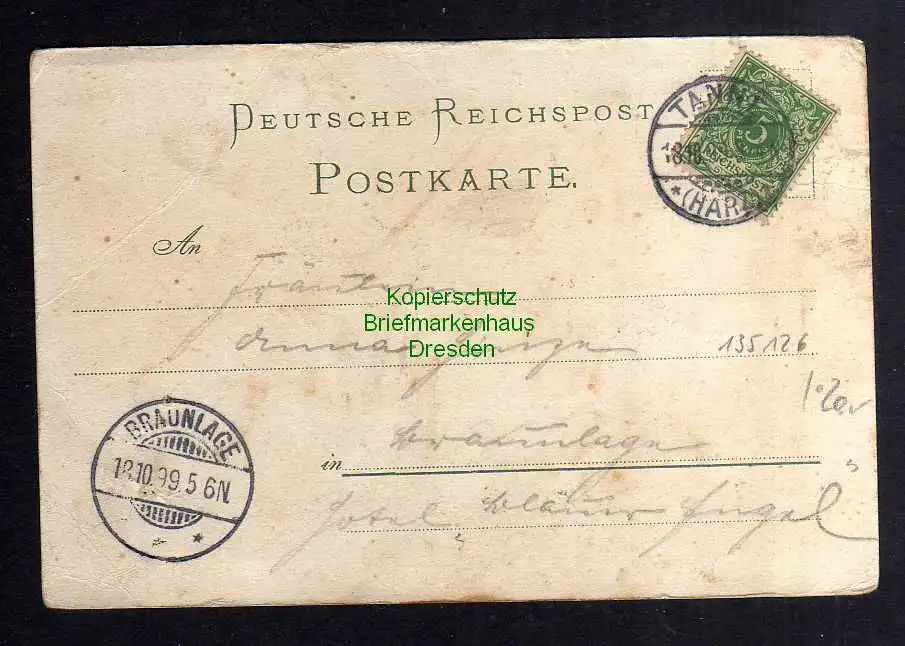 DEUTSCHE REICHSPOST
POSTKARTE.
TANNE
18.10
* (HARZ)
5
An
Fräulein
Kopierschutz
Briefmarkenhaus
Dresden
Anna
135,126
in Braunlage
Hotel blauer Engel
BRAUNLAGE
18.10.99.5 6N.
*